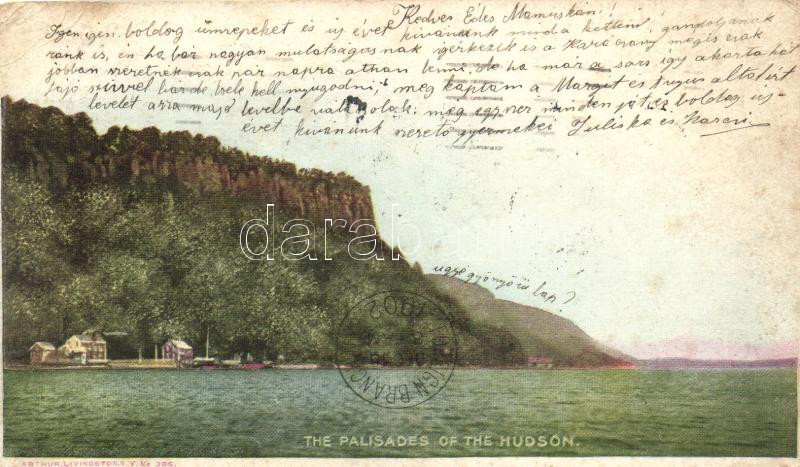 Kedves Édes Mamuskám!
Igen igen boldog ünnepeket és új évet kívánunk mind a kettem, gondoljanak
ránk is, én ha bár nagyon mulatságosnak ígérkezik is a Karácsony mégis csak
jobban szeretnék pár napra otthon lenni, de ha már a sors így akarta hát
fájó szívvel bár de bele kell nyugodni, meg kaptam a Margit és
levelét arra majd levélbe válaszolok; még egyszer minden jót és boldog új-
évet kívánunk szerető gyermekei Juliska és
ugye gyönyörű lap?
1902
BRANCH
THE PALISADES OF THE HUDSON.
ARTHUR LIVINGSTON, N.Y. No 386.
darabanth